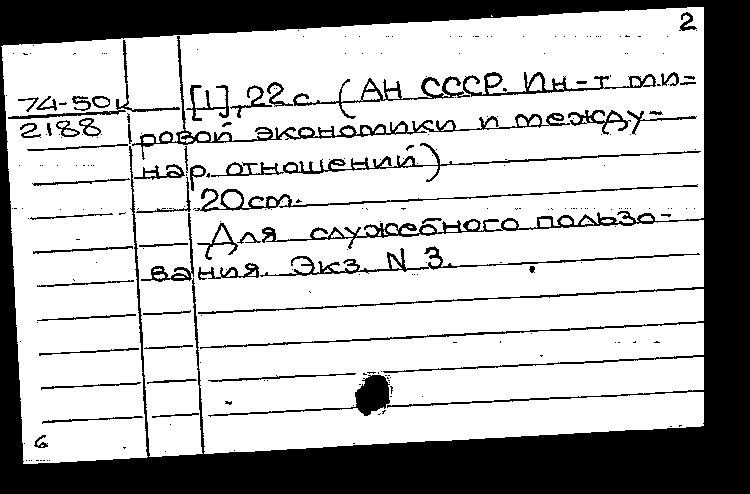 2
74-50к [1], 22 с. (АН СССР. Ин-т ми=
2188 ровой экономики и между-
нар. отношений).
20 см.
Для служебного пользо-
вания. Экз. N 3.
6